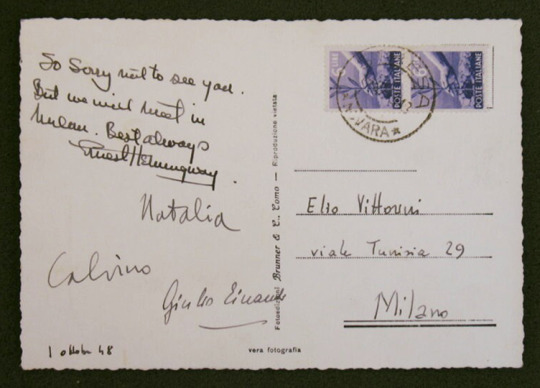 So Sorry not to see you.
But we will meet in
Milan. Best always
Ernest Hemingway.
Natalia
Calvino
Giulio Einaudi
1 ottobre 48
vera fotografia
Brunner & C., Como — Riproduzione vietata
POSTE ITALIANE
POSTE ITALIANE
Elio Vittorini
viale Tunisia 29
Milano